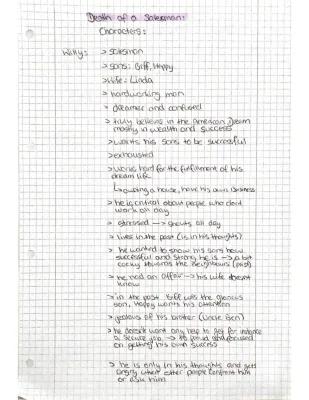 Death of a Salesman:
Characters:
Willy: > salesman
> sons: Biff, Happy
> Wife: Linda
> hardworking man
> dreamer and confused
> truly believes in the American Dream
mostly in wealth and success
> wants his sons to be successful
> exhausted
> works hard for the fulfillment of his
dream life
↳ owning a house, have his own business
> he is critical about people who don't
work all day
> stressed → shouts all day
> lives in the past (is in his thoughts)
> he wanted to show his sons how
successful and strong he is → a bit
cocky towards the neighbours (past)
> he had an affair → his wife doesn't
know
> in the past Biff was the glorious
son, Happy wants his attention
> jealous of his brother (Uncle Ben)
> he doesn't want any help to get for instance
a secure job → too proud and focused
on getting his own success
> he is only in his thoughts and gets
angry when other people confront him
or ask him